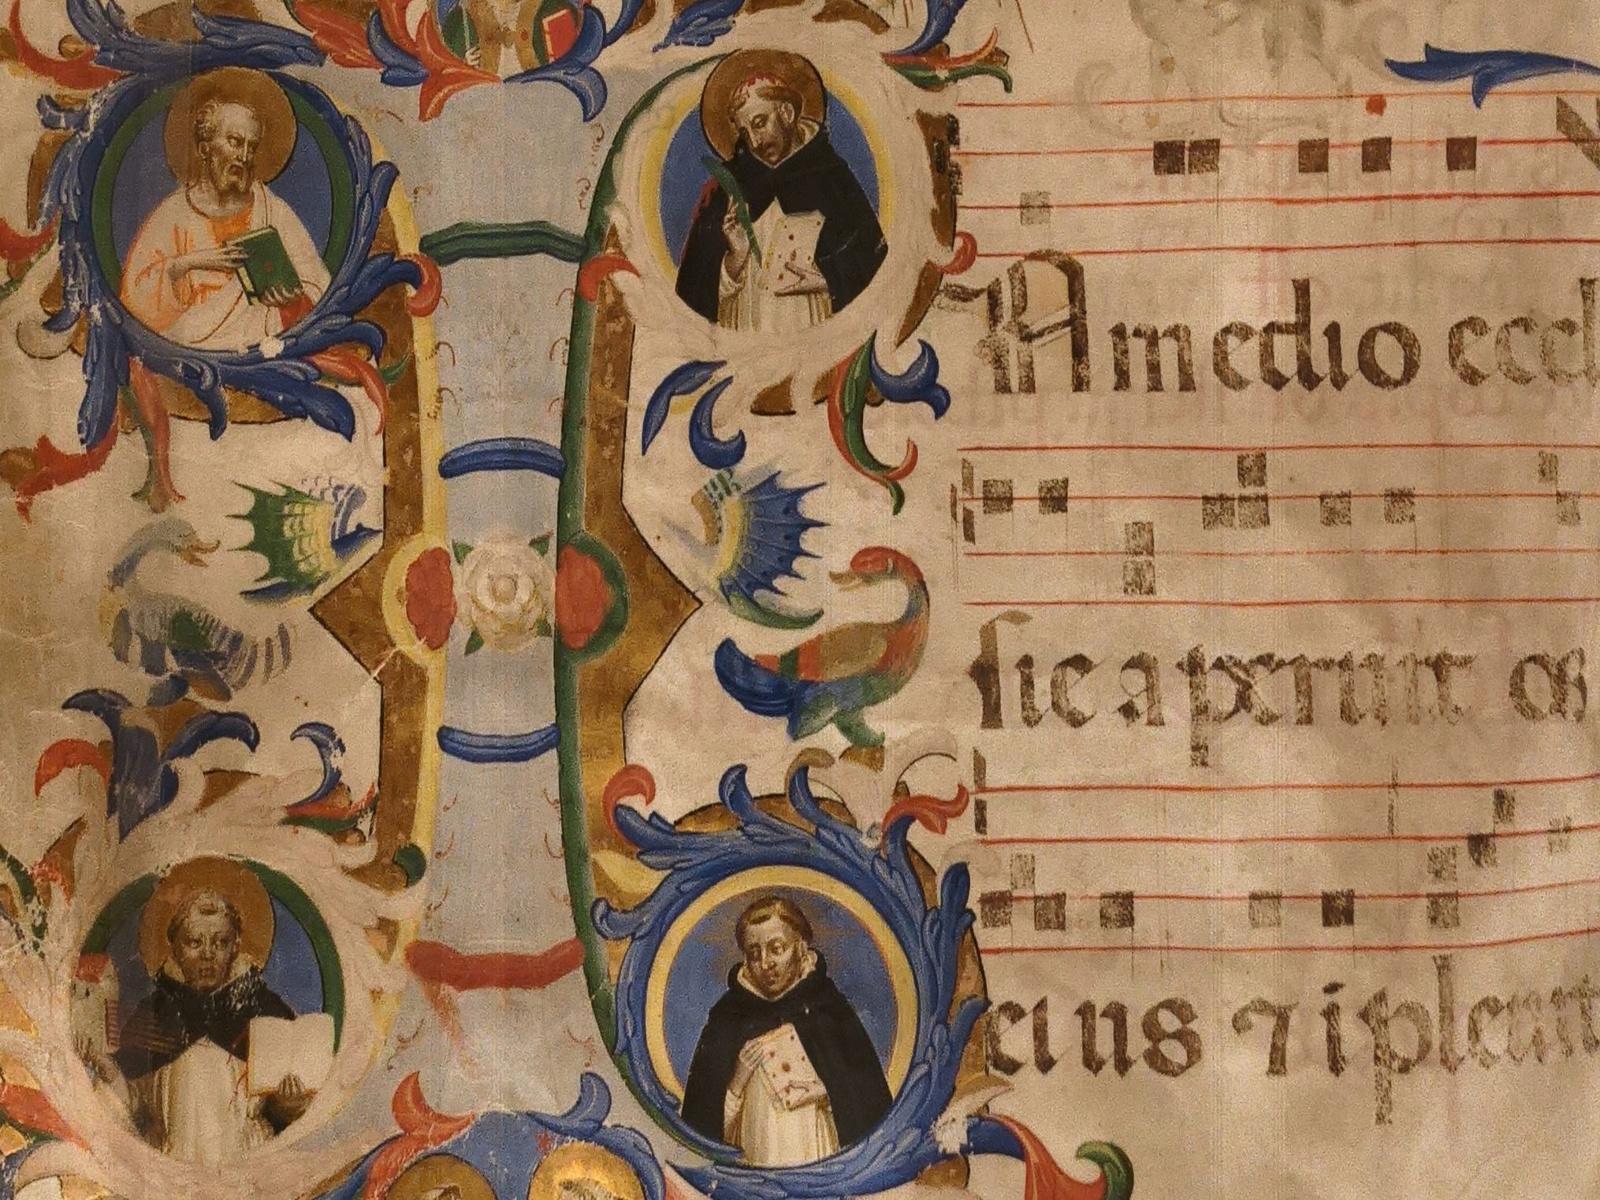 N medio eccl
sie aperuit os
eius ⁊ ipleuit